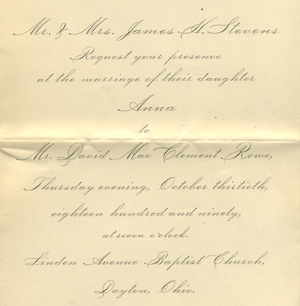 Mr. & Mrs. James H. Stevens
Request your presence
at the marriage of their daughter
Anna
to
Mr. David Mac Clement Rowe,
Thursday evening, October thirtieth,
eighteen hundred and ninety,
at seven o'clock.
Linden Avenue Baptist Church,
Dayton, Ohio.